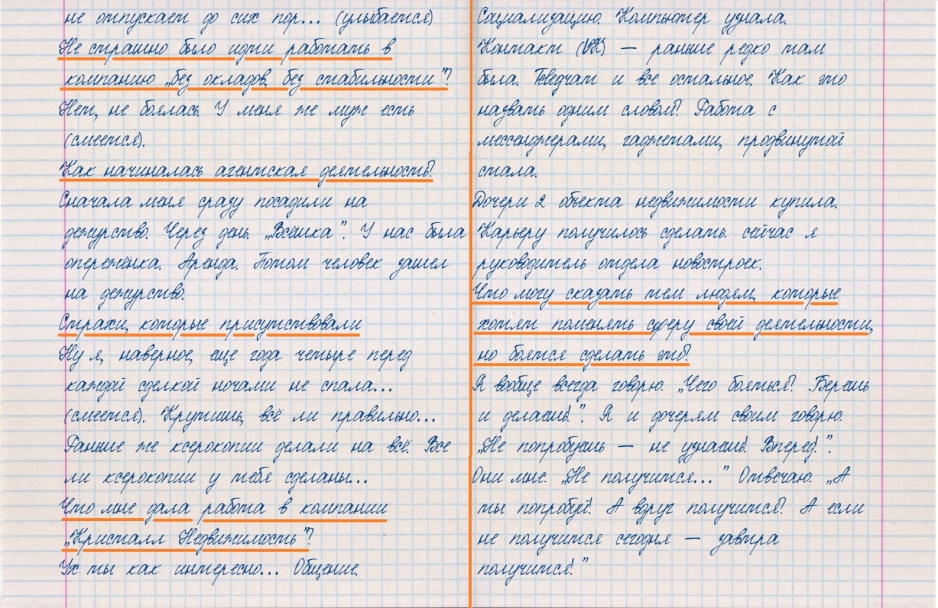 не отпускает до сих пор... (улыбается)
Не страшно было идти работать в
компанию „без окладов, без стабильности"?
Нет, не боялась. У меня же муж есть
(смеется).
Как начиналась агентская деятельность?
Сначала меня сразу посадили на
дежурство. Через день. „Всёшка". У нас была
опереженка. Аренда. Потом человек зашел
на дежурство.
Страхи, которые присутствовали
Ну я, наверное, еще года четыре перед
каждой сделкой ночами не спала...
(смеется). Крутишь, всё ли правильно...
Раньше же ксерокопии делали на всё. Все
ли ксерокопии у тебя сделаны...
Что мне дала работа в компании
„Кристалл Недвижимость"?
Ух ты как интересно... Общение.
Социализацию. Компьютер узнала.
Контакт (VK) — раньше редко там
была. Телеграм и все остальное. Как это
назвать одним словом? Работа с
мессенджерами, гаджетами, продвинутой
стала.
Дочери 2 объекта недвижимости купила.
Карьеру получилось сделать. сейчас я
руководитель отдела новостроек.
Что могу сказать тем людям, которые
хотят поменять сферу своей деятельности,
но боятся сделать это?
Я вообще всегда говорю: „Чего бояться? Берешь
и делаешь!". Я и дочерям своим говорю:
„Не попробуешь — не узнаешь! Вперед!".
Они мне: „Не получится..." Отвечаю: „А
ты попробуй! А вдруг получится? А если
не получится сегодня — завтра
получится!"